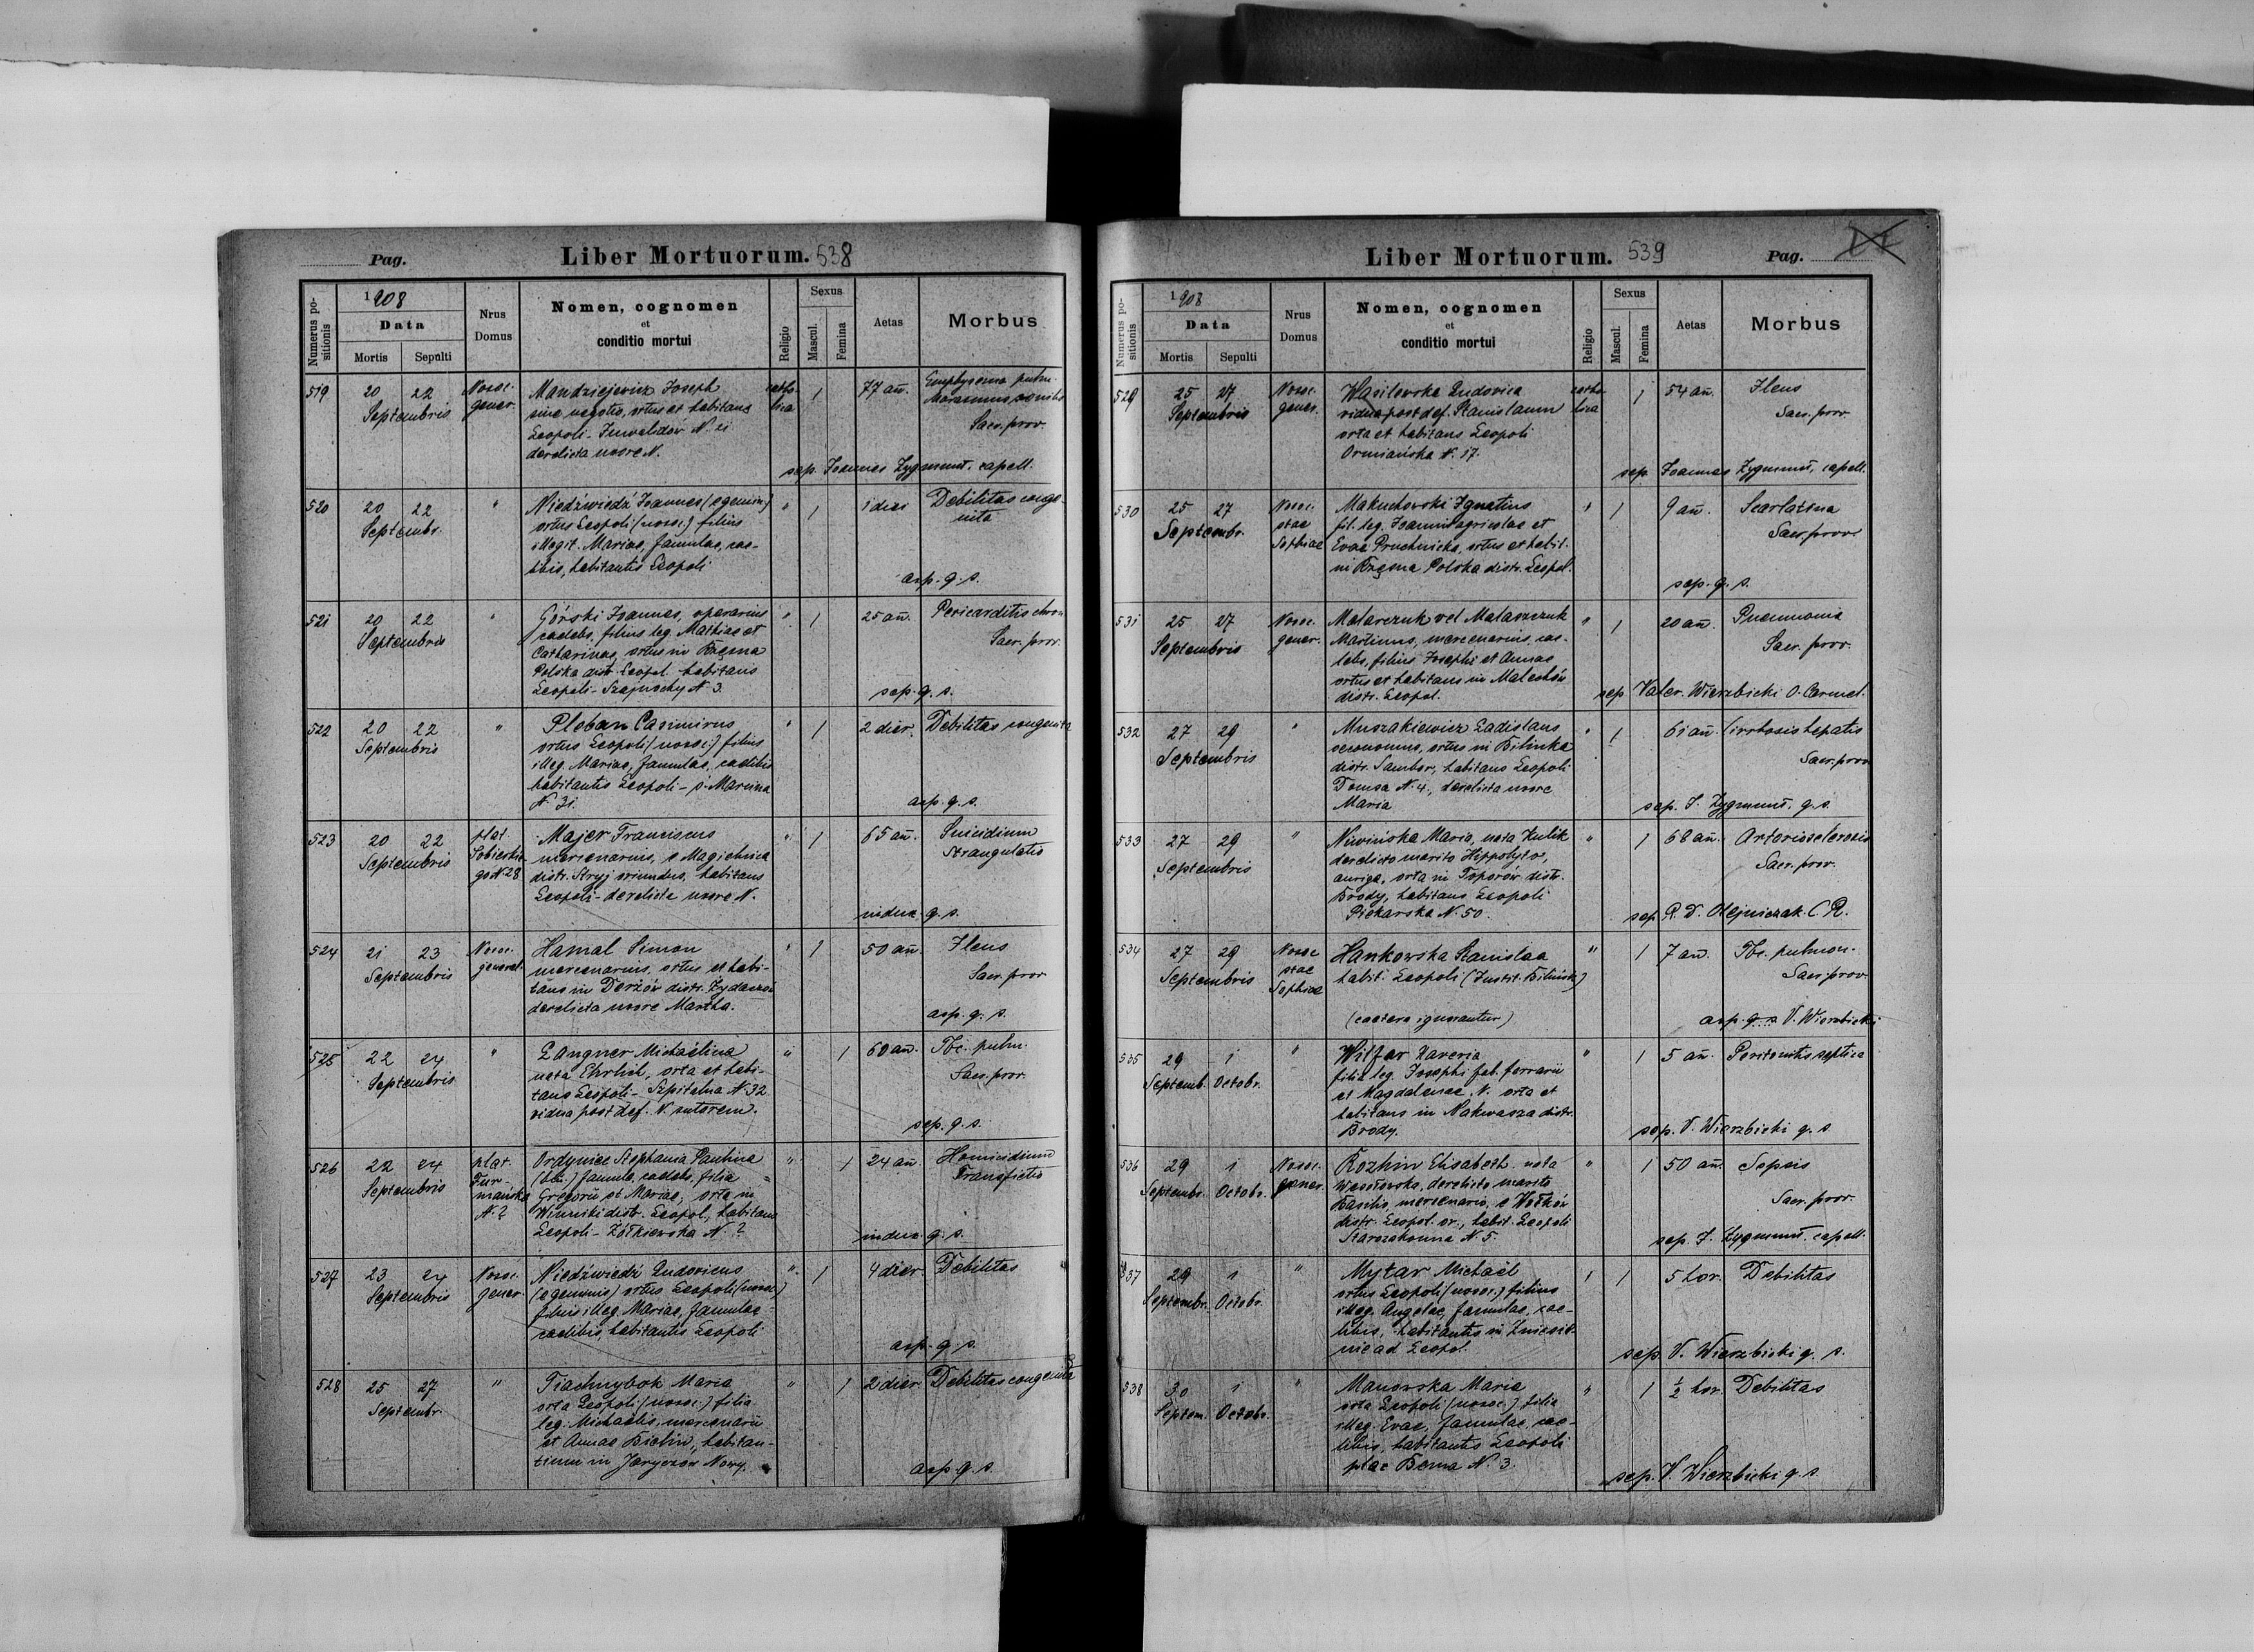 Pag.
Liber Mortuorum. 538
Numerus positionis
1908
Data
Mortis
Sepulti
Nrus Domus
Nomen, cognomen
et
conditio mortui
Religio
Sexus
Mascul.
Femina
Aetas
Morbus
519 20 22 Nosoc. Mandziejewicz Joseph catho- 1 77 añ. Emphysema pulm.
Septembris gener. sine negotio, ortus et habitans lica Marasmus senilis
Leopoli - Inwalidów N. 21 Sacr. prov.
derelicta uxore N.
sep. Joannes Zygmunt, capell.
520 20 22 " Niedźwiedź Joannes (egemin.) " 1 1 dies Debilitas conge-
Septembr. ortus Leopoli (nosoc.) filius nita
illegit. Mariae, famulae, cae-
libis, habitantis Leopoli
asp. q. s.
521 20 22 " Górski Joannes, operarius " 1 25 añ. Pericarditis chron.
Septembris caelebs, filius leg. Mathiae et Sacr. prov.
Catharinae, ortus in Rzęsna
Polska distr. Leopol. habitans
Leopoli - Szajnochy N 3.
sep. q. s.
522 20 22 " Pleban Casimirus " 1 2 dier. Debilitas congenita
Septembris ortus Leopoli (nosoc.) filius
illeg. Mariae, famulae, caelibis
habitantis Leopoli - ś. Marcina
N. 31
asp. q. s.
523 20 22 plat. Majer Franciscus " 1 65 añ. Suicidium
Septembris Sobieskie- mercenarius, e Magielnica Strangulatio
go N 28 distr. Stryj oriundus, habitans
Leopoli - derelicta uxore N.
indux. q. s.
524 21 23 Nosoc. Hamal Simon " 1 50 añ Ileus
Septembris general. mercenarius, ortus et habi- Sacr. prov
tans in Derżów distr. Żydaczów
derelicta uxore Martha.
asp. q. s.
525 22 24 " Langner Michaëlina " 1 60 añ. Tbc. pulm.
Septembris nata Ehrlich, orta et habi- Sacr. prov.
tans Leopoli - Szpitalna N. 32
vidua post def. N. sutorem.
sep. q. s.
526 22 24 plat. Ordyniec Stephania Paulina " 1 24 añ. Homicidium
Septembris Fur- famula, caelebs, filia Transfictio
mańska Gregorii et Mariae, orta in
N. ? Winniki distr. Leopol., habitans
Leopoli - Żółkiewska N. ?
indux. q. s.
527 23 24 Nosoc. Niedźwiedź Ludovicus " 1 4 dier. Debilitas
Septembris gener. (egeminis) ortus Leopoli (nosoc.)
filius illeg. Mariae, famulae
caelibis, habitantis Leopoli
asp. q. s.
528 25 27 " Tiachnybok Maria " 1 2 dier. Debilitas congenita
Septembr. orta Leopoli (nosoc.) filia
leg. Michaëlis, mercenarii
et Annae Bielin, habitan-
tium in Jaryczów Nowy.
asp. q. s.
Liber Mortuorum. 539
Pag.
Numerus positionis
1908
Data
Mortis
Sepulti
Nrus Domus
Nomen, cognomen
et
conditio mortui
Religio
Sexus
Mascul.
Femina
Aetas
Morbus
529 25 27 Nosoc. Wasilewska Ludovica catho- 1 54 añ. Ileus
Septembris gener. vidua post def. Stanislaum lica Sacr. prov.
orta et habitans Leopoli
Ormiańska N. 17.
sep. Joannes Zygmunt, capell.
530 25 27 Nosoc. Makuchowski Ignatius " 1 9 añ. Scarlatina
Septembr. stae fil. leg. Joannis agricolae et Sacr. prov
Sophiae Evae Pruchnicka, ortus et habit.
in Rzęsna Polska distr. Leopol.
sep. q. s.
531 25 27 Nosoc. Matarczuk vel Mataszczuk " 1 20 añ. Pneumonia
Septembris gener. Martinus, mercenarius, cae- Sacr. prov.
lebs, filius Josephi et Annae
ortus et habitans in Malechów
distr. Leopol.
sep. Valer. Wierzbicki O. Carmel.
532 27 29 " Muszakiewicz Ladislaus " 1 61 añ. Cirrhosis hepatis
Septembris oeconomus, ortus in Bilinka Sacr. prov
distr. Sambor, habitans Leopoli
Domsa N. 4., derelicta uxore
Maria
sep. J. Zygmunt, q. s.
533 27 29 " Niwińska Maria, nata Kulik " 1 68 añ. Arteriosclerosis
Septembris derelicto marito Hippolyto, Sacr. prov.
auriga, orta in Toporów distr.
Brody, habitans Leopoli
Piekarska N. 50.
sep. P. D. Olejniczak C. R.
534 27 29 Nosoc Hankowska Stanislaa " 1 7 añ. Tbc. pulmon.
Septembris stae habit. Leopoli (Instit. Bilińsk.) Sacr. prov.
Sophiae
(caetera ignorantur)
asp. q. s V. Wierzbicki
535 29 1 " Wilfer Xaveria " 1 5 añ. Peritonitis septica
Septemb. Octobr. filia leg. Josephi fab. ferrarii
et Magdalenae, N. orta et
habitans in Nakwasza distr.
Brody.
sep. V. Wierzbicki q. s
536 29 1 Nosoc. Rozhin Elisabeth nata " 1 50 añ. Sepsis
Septembr. Octobr. gener. Wesołowska, derelicto marito Sacr. prov.
Basilio, mercenario, e Wołków
distr. Leopol. or., habit. Leopoli
Starozakonna N. 5
sep. J. Zygmunt, capell.
537 29 1 " Mytar Michaël " 1 5 hor. Debilitas
Septembr. Octobr. ortus Leopoli (nosoc.) filius
illeg. Angelae, famulae, cae-
libis, habitantis in Zniesie-
nie ad Leopol.
sep. V. Wierzbicki q. s.
538 30 1 " Manowska Maria " 1 ½ hor. Debilitas
Septem. Octobr. orta Leopoli (nosoc.) filia
illeg. Evae, famulae, cae-
libis, habitantis Leopoli
plac Bema N. 3.
sep. V. Wierzbicki q. s.